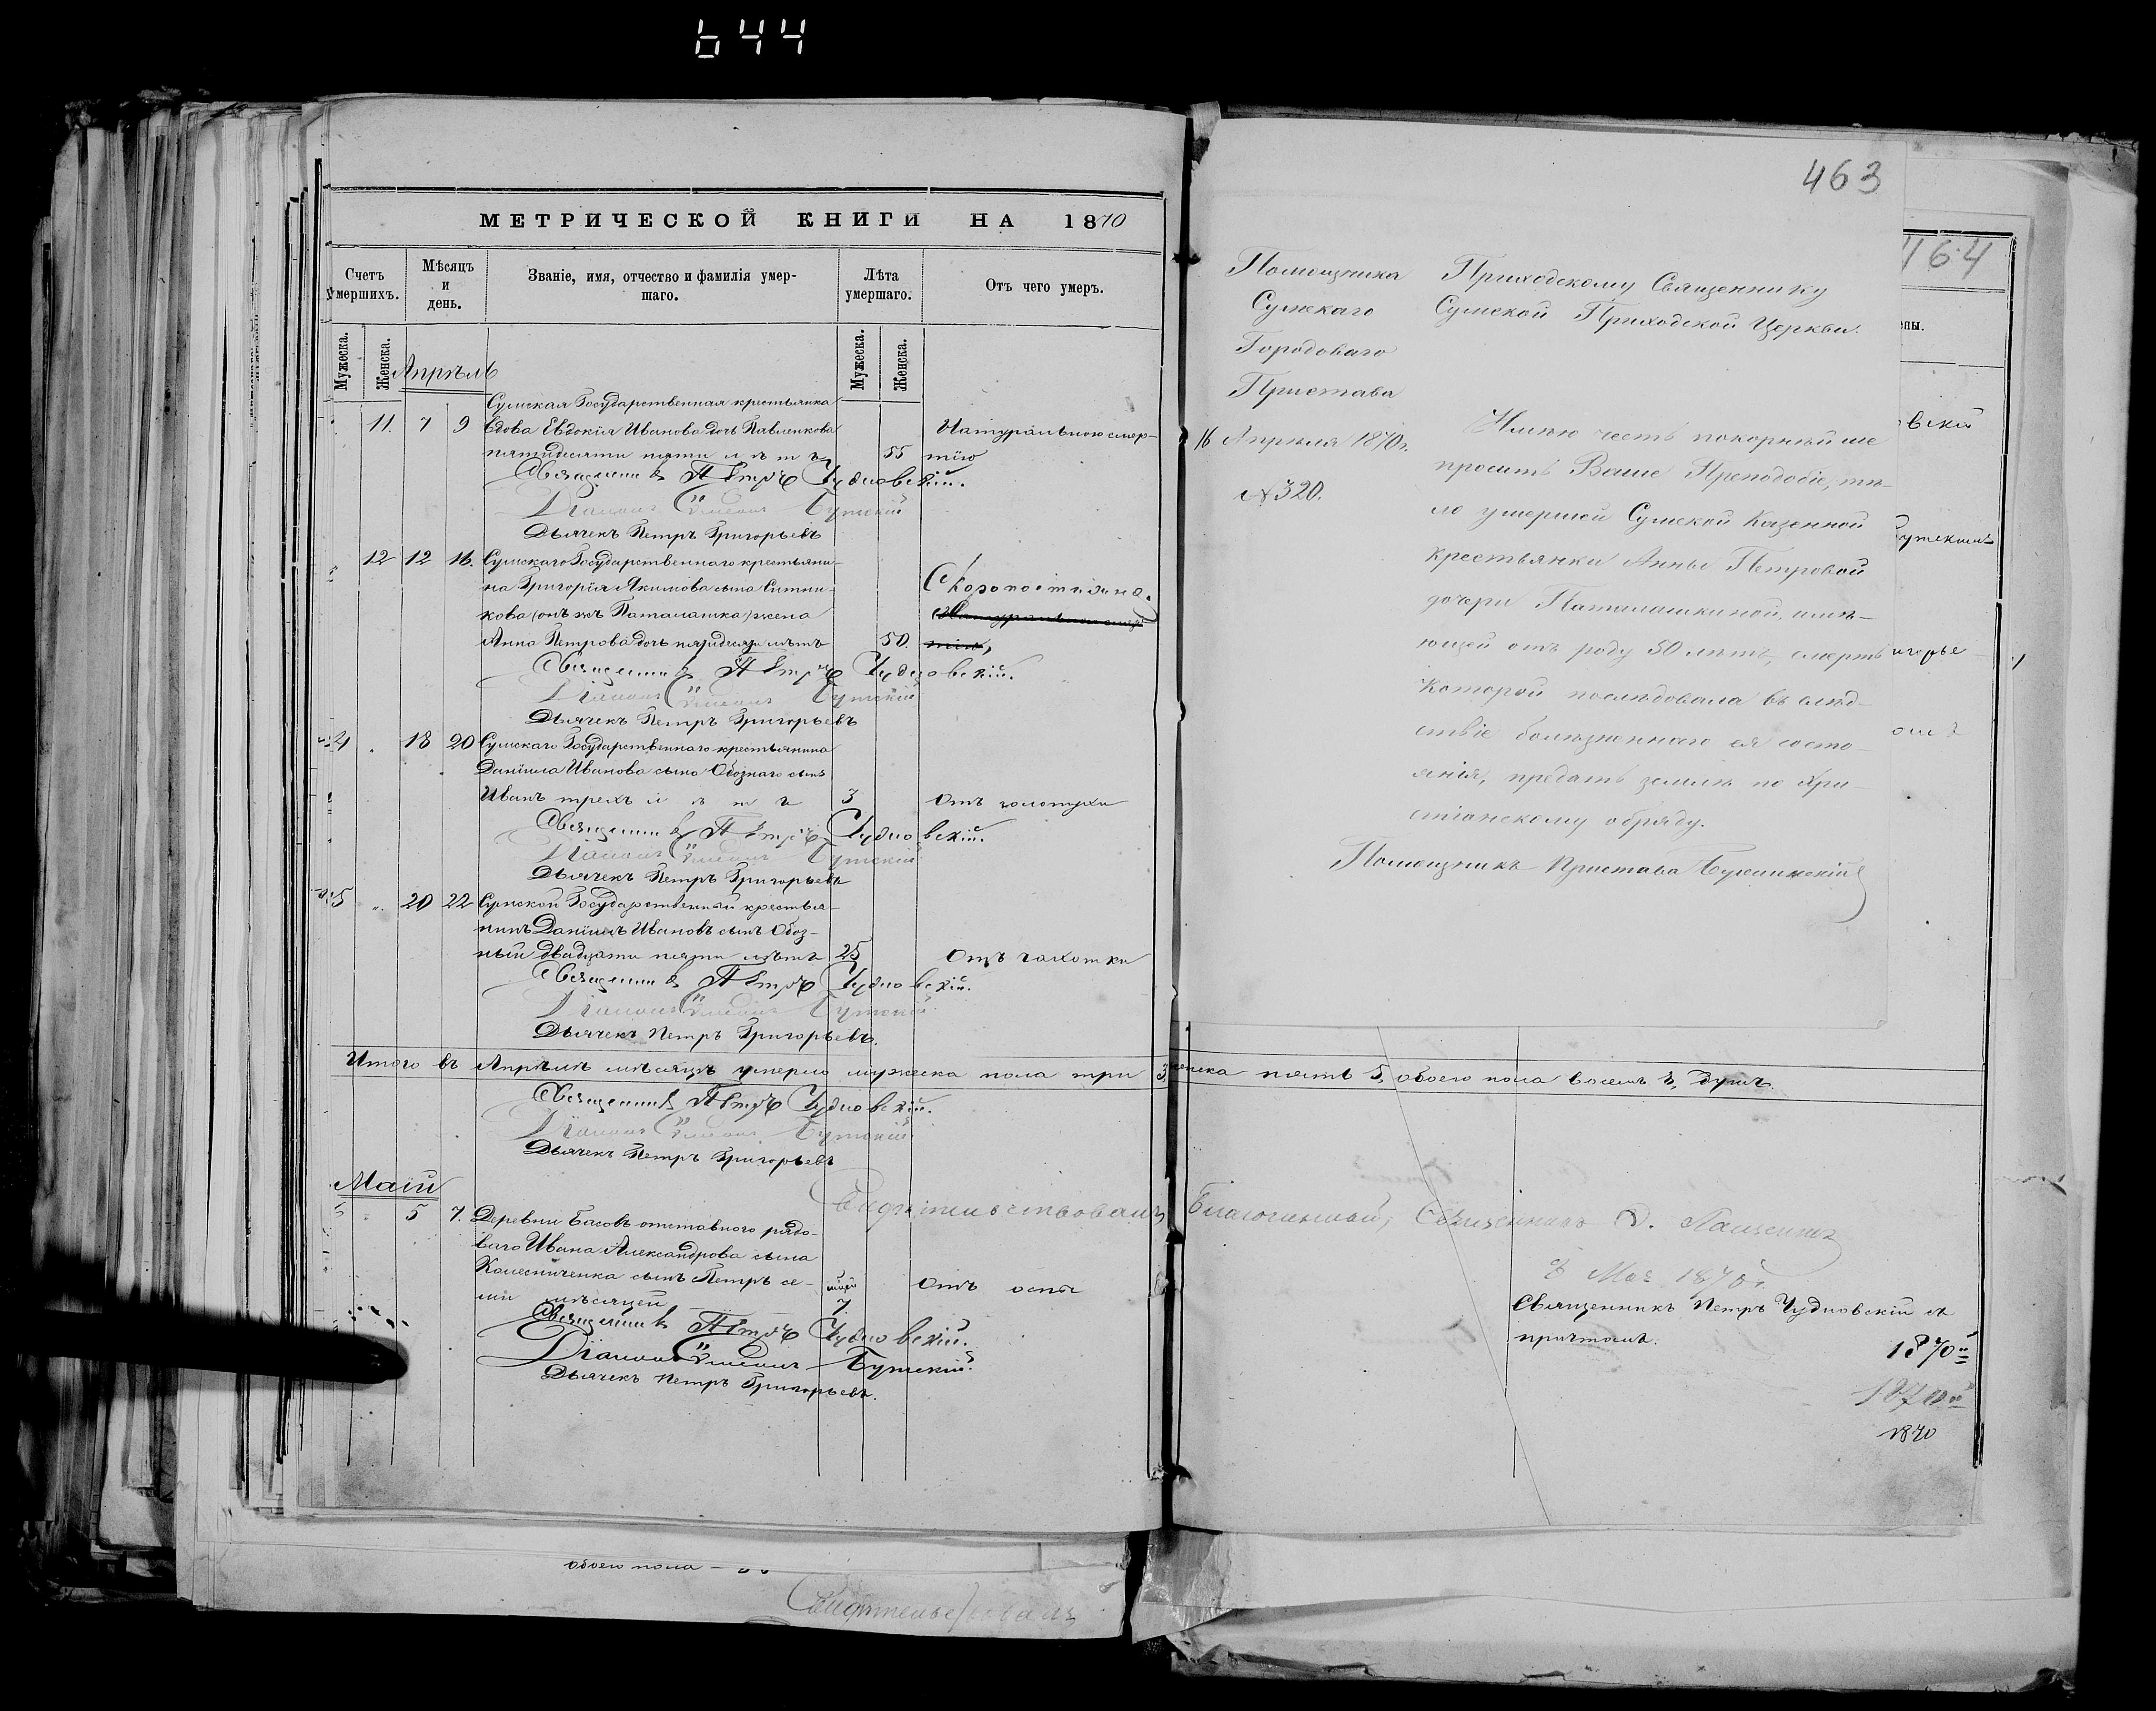 644
МЕТРИЧЕСКОЙ КНИГИ НА 1870
Счетъ умершихъ.
Мѣсяцъ и день.
Званіе, имя, отчество и фамилія умершаго.
Лѣта умершаго.
Отъ чего умеръ.
Мужеска.
Женска.
Мужеска.
Женска.
Апрѣль
Сумская Государственная крестьянка
11. 7 9 вдова Евдокія Иванова дочь Павленкова Натуральною смер-
пятидесяти пяти лѣтъ 55 тію
Священникъ Петръ Чудновскій.
Діаконъ Симеонъ Бутскій
Дьячекъ Петръ Григорьевъ
12 12 16. Сумскаго Государственнаго крестьяни-
на Григорія Якимова сына Ситни- Скоропостижна.
кова (онъ же Паталашка) жена
Анна Петрова дочь пятидесяти лѣтъ 50.
Священникъ Петръ Чудновскій.
Діаконъ Симеонъ Бутскій
Дьячекъ Петръ Григорьевъ
4 18 20 Сумскаго Государственнаго крестьянина
Даніила Иванова сына Обознаго сынъ
Иванъ трехъ лѣтъ 3 Отъ золотухи
Священникъ Петръ Чудновскій.
Діаконъ Симеонъ Бутскій
Дьячекъ Петръ Григорьевъ
5 20 22 Сумской Государственный крестья-
нинъ Даніилъ Ивановъ сынъ Обоз-
ный двадцати пяти лѣтъ 25 Отъ чахотки
Священникъ Петръ Чудновскій.
Діаконъ Симеонъ Бутскій
Дьячекъ Петръ Григорьевъ.
Итого въ Апрѣлѣ мѣсяцѣ умерло мужеска пола три 3, женска пять 5, обоего пола восемь 8, душъ.
Священникъ Петръ Чудновскій.
Діаконъ Симеонъ Бутскій
Дьячекъ Петръ Григорьевъ
Маій
5 7. Деревни Басовъ отставного рядо-
ваго Ивана Александрова сына
Колесниченка сынъ Петръ се- Отъ оспы
ми мѣсяцей 7
Священникъ Петръ Чудновскій.
Діаконъ Симеонъ Бутскій
Дьячекъ Петръ Григорьевъ.
обоего пола
Свидѣтельствовалъ
463
Помощника
Сумскаго
Городоваго
Пристава
16 Апрѣля 1870 г.
№ 320.
Приходскому Священнику
Сумской Приходской Церкви.
Имѣю честь покорнѣйше
просить Ваше Преподобіе, тѣ-
ло умершей Сумской Казенной
крестьянки Анны Петровой
дочери Паталашкиной, имѣ-
ющей отъ роду 50 лѣтъ, смерть
которой послѣдовала въ слѣд-
ствіе болѣзненнаго ея состо-
янія, предать землѣ по Хри-
стіанскому обряду.
Помощникъ Пристава
464
Свидѣтельствовалъ Благочинный, Священникъ
8 Мая 1870 г.
Священникъ Петръ Чудновскій съ
причтомъ.
1870
1870
1870